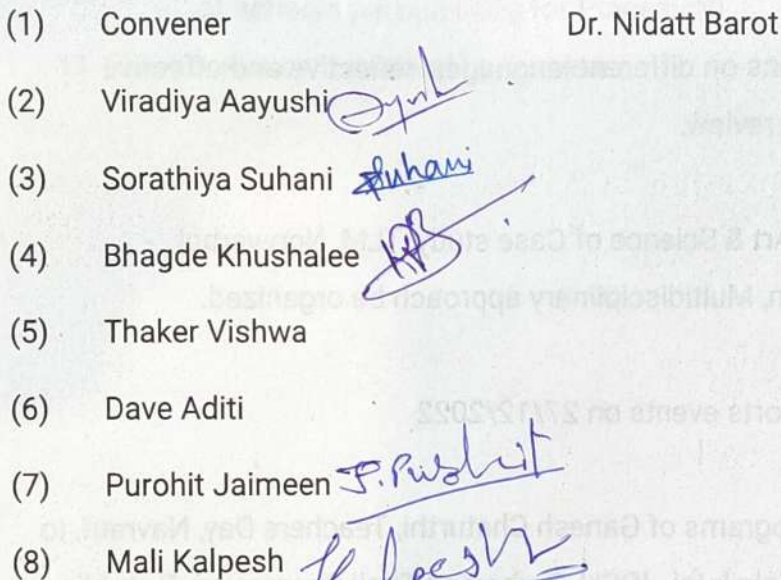 (1) Convener Dr. Nidatt Barot
(2) Viradiya Aayushi
(3) Sorathiya Suhani Suhani
(4) Bhagde Khushalee
(5) Thaker Vishwa
(6) Dave Aditi
(7) Purohit Jaimeen J. Purohit
(8) Mali Kalpesh